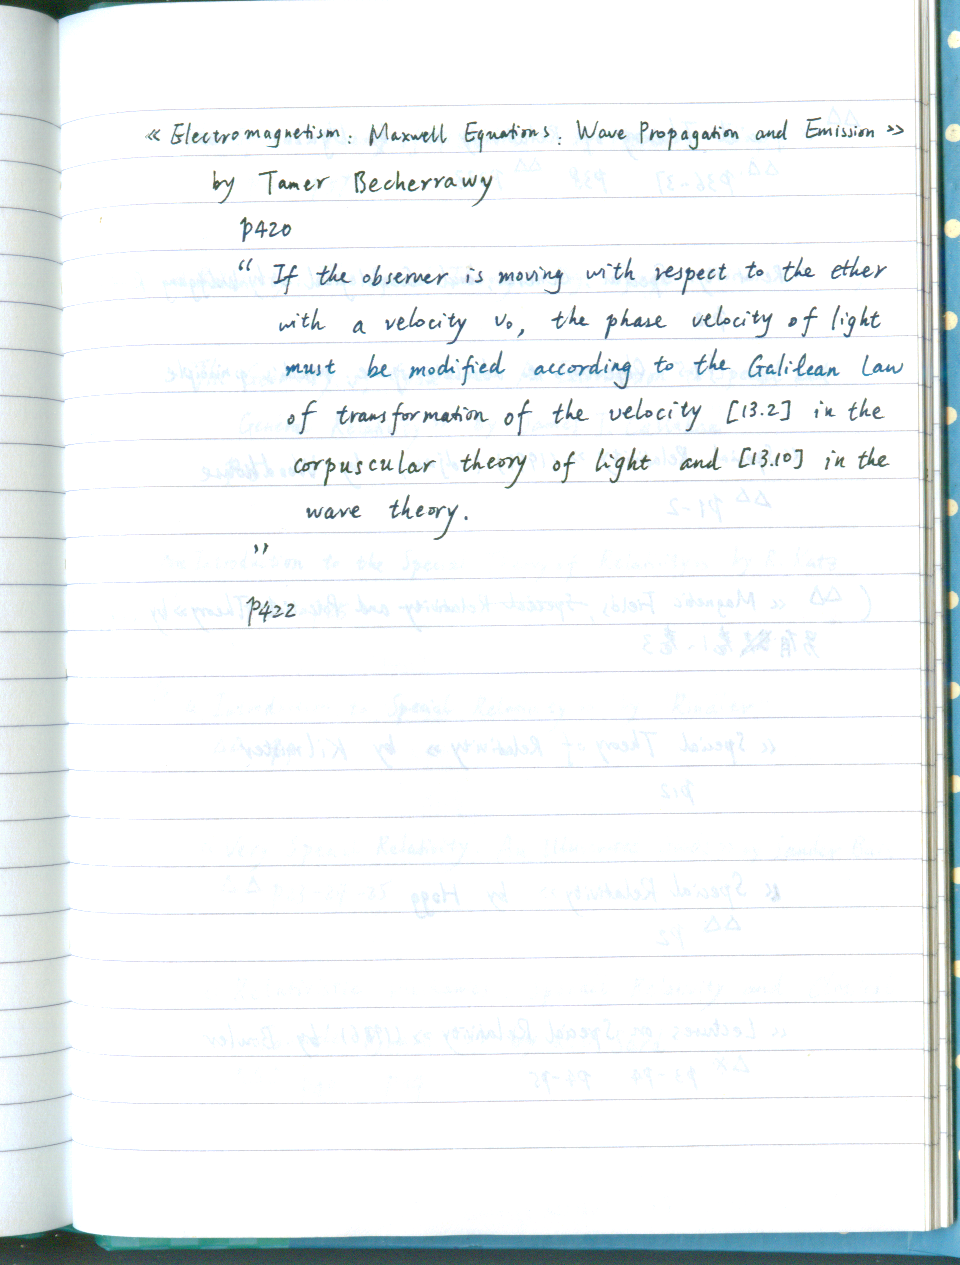 « Electromagnetism: Maxwell Equations, Wave Propagation and Emission »
by Tamer Becherrawy
p420
“ If the observer is moving with respect to the ether
with a velocity v₀, the phase velocity of light
must be modified according to the Galilean Law
of transformation of the velocity [13.2] in the
corpuscular theory of light and [13.10] in the
wave theory.
”
p422